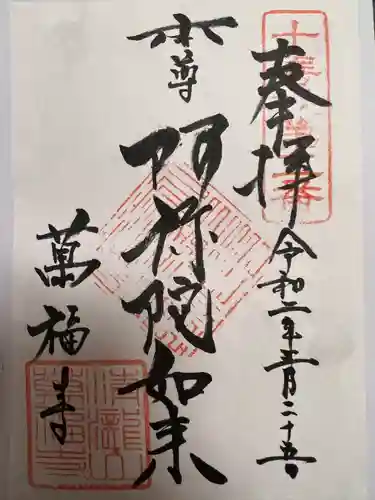 奉拝
令和二年五月二十五日
本尊
阿弥陀如来
萬福寺